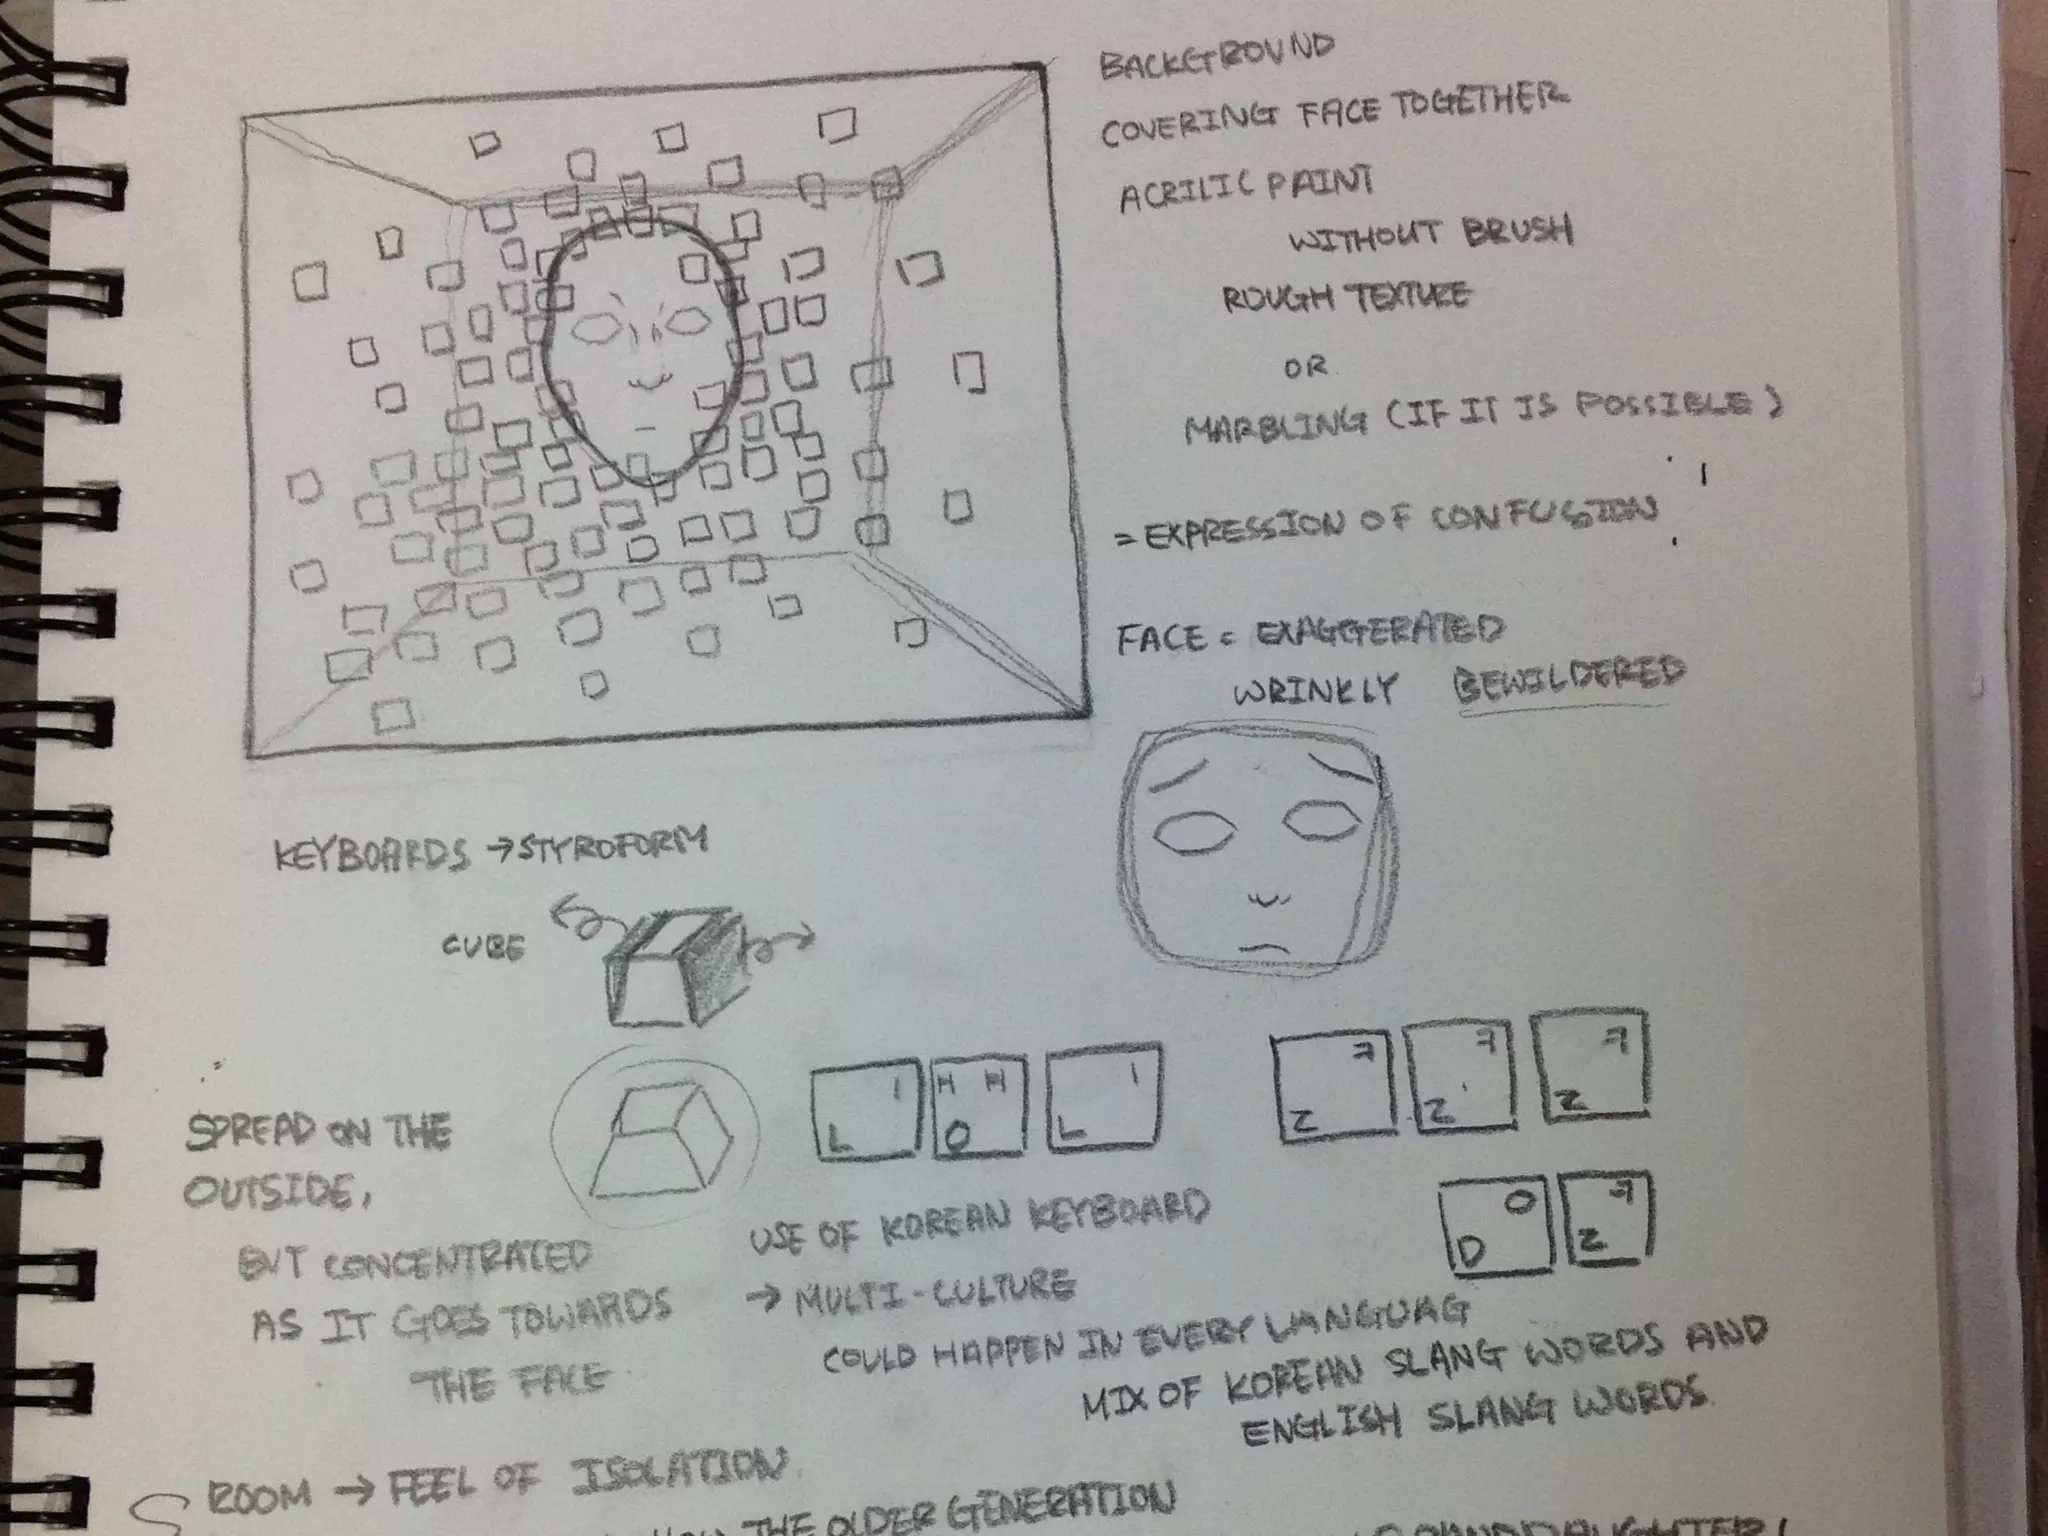 BACKGROUND
COVERING FACE TOGETHER
ACRILIC PAINT
WITHOUT BRUSH
ROUGH TEXTURE
OR
MARBLING (IF IT IS POSSIBLE)
= EXPRESSION OF CONFUSION
FACE = EXAGGERATED
WRINKLY BEWILDERED
KEYBOARDS → STYROFORM
CUBE
SPREAD ON THE
OUTSIDE,
BUT CONCENTRATED
AS IT GOES TOWARDS
THE FACE
L ㅣ O L ㅣ
Z ㅋ Z ㅋ Z ㅋ
D ㅇ Z ㅋ
USE OF KOREAN KEYBOARD
→ MULTI-CULTURE
COULD HAPPEN IN EVERY LANGUAG
MIX OF KOREAN SLANG WORDS AND
ENGLISH SLANG WORDS.
ROOM → FEEL OF ISOLATION
THE OLDER GENERATION